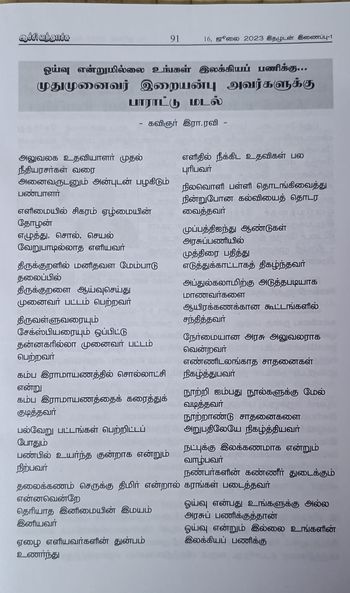 91
16, ஜூலை 2023 இதழுடன் இணைப்பு-1
ஓய்வு என்றுமில்லை உங்கள் இலக்கியப் பணிக்கு...
முதுமுனைவர் இறையன்பு அவர்களுக்கு
பாராட்டு மடல்
- கவிஞர் இரா.ரவி -
அலுவலக உதவியாளர் முதல்
நீதியரசர்கள் வரை
அனைவருடனும் அன்புடன் பழகிடும்
பண்பாளர்
எளிமையின் சிகரம் ஏழ்மையின்
தோழன்
எழுத்து, சொல், செயல்
வேறுபாடில்லாத எளியவர்
திருக்குறளில் மனிதவள மேம்பாடு
தலைப்பில்
திருக்குறளை ஆய்வுசெய்து
முனைவர் பட்டம் பெற்றவர்
திருவள்ளுவரையும்
சேக்ஸ்பியரையும் ஒப்பிட்டு
தன்னகரில்லா முனைவர் பட்டம்
பெற்றவர்
கம்ப இராமாயணத்தில் சொல்லாட்சி
என்று
கம்ப இராமாயணத்தைக் கரைத்துக்
குடித்தவர்
பல்வேறு பட்டங்கள் பெற்றிட்டப்
போதும்
பண்பில் உயர்ந்த குன்றாக என்றும்
நிற்பவர்
தலைக்கணம் செருக்கு திமிர் என்றால்
என்னவென்றே
தெரியாத இனிமையின் இமயம்
இனியவர்
ஏழை எளியவர்களின் துன்பம்
உணர்ந்து
எளிதில் நீக்கிட உதவிகள் பல
புரிபவர்
நிலவொளி பள்ளி தொடங்கிவைத்து
நின்றுபோன கல்வியைத் தொடர
வைத்தவர்
முப்பத்திஐந்து ஆண்டுகள்
அரசுப்பணியில்
முத்திரை பதித்து
எடுத்துக்காட்டாகத் திகழ்ந்தவர்
அப்துல்கலாமிற்கு அடுத்தபடியாக
மாணவர்களை
ஆயிரக்கணக்கான கூட்டங்களில்
சந்தித்தவர்
நேர்மையான அரசு அலுவலராக
வென்றவர்
எண்ணிடலங்காத சாதனைகள்
நிகழ்த்துபவர்
நூற்றி ஐம்பது நூல்களுக்கு மேல்
வடித்தவர்
நூற்றாண்டு சாதனைகளை
அறுபதிலேயே நிகழ்த்தியவர்
நட்புக்கு இலக்கணமாக என்றும்
வாழ்பவர்
நண்பர்களின் கண்ணீர் துடைக்கும்
கரங்கள் படைத்தவர்
ஓய்வு என்பது உங்களுக்கு அல்ல
அரசுப் பணிக்குத்தான்
ஓய்வு என்றும் இல்லை உங்களின்
இலக்கியப் பணிக்கு